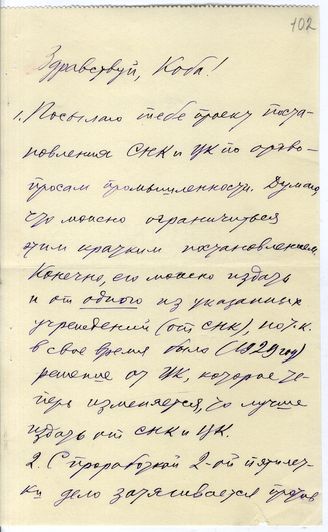 102
Здравствуй, Коба!
1. Посылаю тебе проект поста-
новления СНК и ЦК по
просам промышленности. Думаю,
что можно ограничиться
этим кратким постановлением.
Конечно, его можно издать
и от одного из указанных
учреждений (от СНК), но т.к.
в свое время было (1929 год)
решение от ЦК, которое те-
перь изменяется, то лучше
издать от СНК и ЦК.
2. С проработкой 2-ой пятилет-
ки дело затягивается против